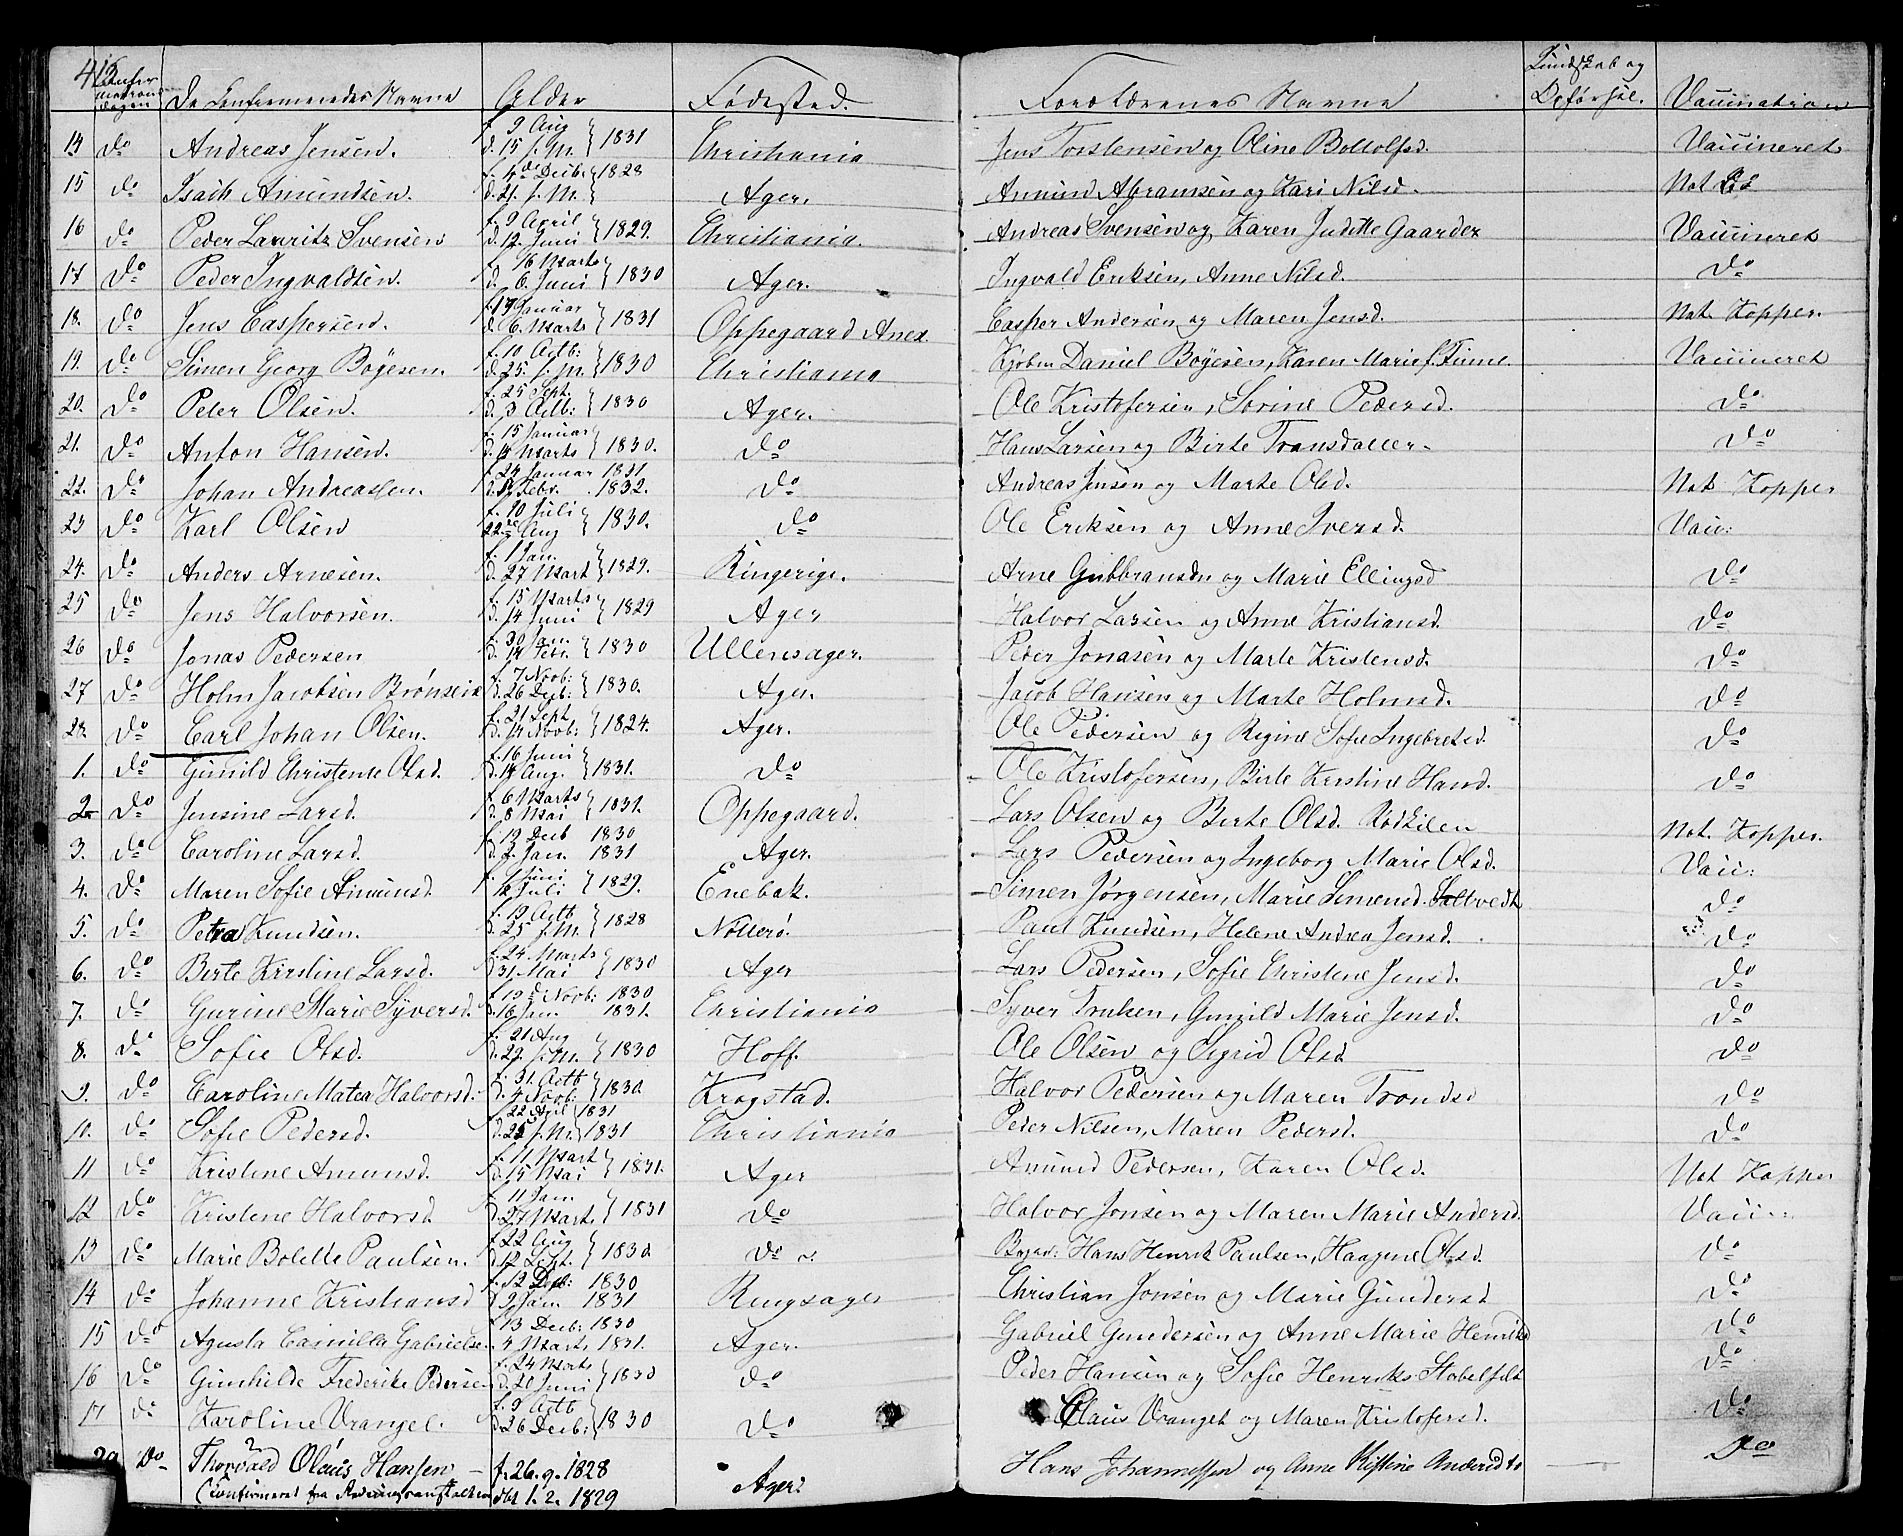 Confirmations dagen De Confirmeredes Navne Alder Fødested. Forældrenes Navne Kundskab og Opførsel. Vaccination
14 do Andreas Jensen. f. 9 Aug d. 15 s. M. } 1831 Christiania Jens Torstensen og Oline Bottolfsd. Vaccineret
15 do Isach Amundsen. f. 4de Decb: d. 21. s. M. } 1828 Ager. Amund Abramsen og Kari Nilsd. Nat.
16 do Peder Lauritz Svensen f. 9 April d. 12. Juni } 1829. Christiania. Andreas Svensen og Karen Juditte Gaarder Vaccineret
17 do Peder Ingvaldsen. f. 16 Marts d. 6. Juni } 1830 Ager. Ingvald Eriksen, Anne Nilsd. do
18. do Jens Caspersen. f. 19 Januar d. 6. Marts } 1831 Oppegaard Anex Casper Andersen og Maren Jensd. Nat. Kopper.
19. do Simen Georg Böyesen. f. 10 Octb: d. 25. s. M. } 1830 Christiania Kjøbm Daniel Boyesen, Karen Marie f. Finne. Vaccineret
20. do Peter Olsen. f. 25 Sept. d. 3 Octb: } 1830 Ager. Ole Kristofersen, Sorine Pedersd. do
21. do Anton Hansen. f. 15 Januar d. 14 Marts } 1830. do Hans Larsen og Birte Transdatter. do
22. do Johan Andreassen. f. 24 Januar 1831 d. Febr. 1832. do Andreas Jensen og Marte Olsd. Nat. Kopper
23 do Karl Olsen f. 10 Juli 22de Aug } 1830. do Ole Eriksen og Anne Iversd. Vacc:
24. do Anders Arnesen. f. 1 Jan. d. 27 Mart } 1829. Ringerige. Arne Gulbransen og Marie Ellingsd do
25 do Jens Halvorsen. f. 15 Marts d. 14 Juni } 1829 Ager Halvor Larsen og Anne Kristiansd. do
26 do Jonas Pedersen f. 30 Jan. d. 14 Febr. } 1830 Ullensager. Peder Jonasen og Marte Kristensd. do
27 do Holm Jacobsen f. 7 Novb: d. 26 Decb: } 1830. Ager. Jacob Hansen og Marte Holmsd. do
28. do Carl Johan Olsen. f. 21 Sept d. 14 Novb: } 1824. Ager. Ole Pedersen og Regine Sofie Ingebretsd. do
1. do Gunild Christense Olsd. f. 16 Juni d. 14 Aug. } 1831. do Ole Kristofersen, Birte Kirstine Hansd. do
2 do Jensine Larsd. f. 6 Marts d. 8 Mai } 1831. Oppegaard. Lars Olsen og Birte Olsd. Rødkilen Nat. Kopper.
3. do Caroline Larsd. f. 19 Decb 1830 d. 2. Jan. 1831 Ager. Lars Pedersen og Ingeborg Marie Olsd. Vacc:
4. do Maren Sofie Simensd. f. 1 Juni Juli } 1829. Enebak. Simen Jørgensen, Marie Simensd. do
5. do Petra Knudsen. f. 19 Octb d. 25 s. M. } 1828 Nötterö. Paul Knudsen, Helene Andrea Jensd. do
6. do Birte Kirstine Larsd. f. 24. Marts 31. Mai } 1830 Ager Lars Pedersen, Sofie Christine Jensd. do
7. do Gurine Marie Syversd. f. 19de Novb: 1830 d. 16 Jan. 1831. Christiania Syver Trulsen, Gunild Marie Jensd. do
8. do Sofie Olsd. f. 21 Aug d. 22. s. M. } 1830 Hoff. Ole Olsen og Sigrid Olsd do
9. do Caroline Matea Halvorsd. f. 31. Octb d. 4 Novb: } 1830. Krogstad. Halvor Pedersen og Maren Trondsd do
10. do Sofie Pedersd. f. 22 April 1831 d. 25 s. M. 1831 Christiania Peder Nilsen, Maren Pedersd. do
11 do Kristine Amunsd. f. 11 Mart d. 15 Mai } 1831. Ager Amund Pedersen, Karen Olsd. Nat Kopper
12 do Kristine Halvorsd. f. 11 Jan d. 27 Marts } 1831 do Halvor Jonsen og Maren Marie Andersd. Vacc:
13 do Marie Bolette Paulsen. f. 22 Aug d. 12 Sept. } 1830. do Hans Henrik Paulsen, Haagene Olsd. do
14 do Johanne Kristiansd f. 12 Decb: 1830 9 Jan 1831 Ringsager Christian Jonsen og Marie Gundersd do
15 do Agusta Camilla Gabrielse f. 13 Decb: 1830 4 Marts 1831. Ager. Gabriel Gundersen og Anne Marie Henriks do
16 do Gunhilde Frederike Pedersen f. 24 Marts d. 20 Juni } 1830 do Peder Hansen og Sofie Henriks Stabelfelt do
17 do Karoline Vrangel. f. 9 Octb d. 26 Decb: } 1830 do Claus Vrangel og Maren Kristofersd. do
29 Do Thorvald Olaus Hansen f. 26.9.1828 Ager. Hans Johannessen og Anne Kistine Andersd Do
(Confirmeret fra dbt 1.2.1829